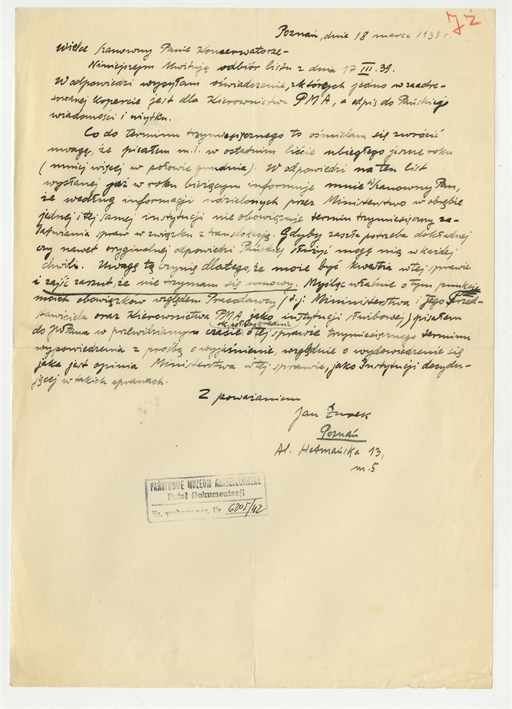 JŻ
Poznań, dnie 18 marca 1939 r.
Wielce Szanowny Panie Konserwatorze-
Niniejszym kwituję odbiór listu z dnia 17 III. 39.
W odpowiedzi wysyłam oświadczenie, z których jedno w zaadre-
sowanej kopercie jest dla Kierownictwa PMA, a odpis do Pańskiej
wiadomości i użytku.
Co do terminu trzymiesięcznego to ośmielam się zwrócić
uwagę, że pisałem m.i. w ostatnim liście ubiegłego jeszcze roku
(mniej więcej w połowie grudnia). W odpowiedzi na ten list
wysłanej, już w roku bieżącym informuje mnie Szanowny Pan,
że według informacji udzielonych przez Ministerstwo w obrębie
jednej i tej samej instytucji nie obowiązuje termin trzymiesięczny za-
łatwiania spraw w związku z translokacją. Gdyby zaszła potrzeba dokładnej
czy nawet oryginalnej odpowiedzi Pańskiej służyć mogę nią w każdej
chwili. Uwagę tą czynię dlatego, że może być kwestia w tej sprawie
i zajść zarzut, że nie trzymam się umowy. Myśląc właśnie o tym punkcie
moich obowiązków względem Pracodawcy (t.j. Ministerstwa i Jego Przed-
stawiciela oraz Kierownictwa PMA, jako instytucji służbowej) pisałem
do Pana w przewidzianym czasie o tej sprawie trzymiesięcznego terminu
wypowiedzenia z prośbą o wyjaśnienie, względnie o wydowiedzenie się
jaka jest opinia Ministerstwa w tej sprawie, jako Instytucji decydu-
jącej w takich sprawach.
Z poważaniem
Jan Żurek
Poznań
Al. Hetmańska 13,
m. 5
PAŃSTWOWE MUZEUM ARCHEOLOGICZNE
Dział Dokumentacji
Nr. 6205/42